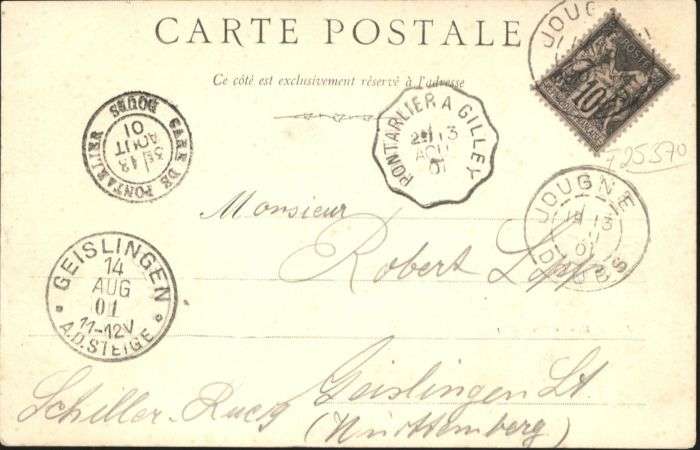 CARTE POSTALE
Ce côté est exclusivement réservé à l'adresse
JOUGNE
10
GARE DE PONTARLIER DOUBS
3E 13
AOUT
01
PONTARLIER A GILLEY
2E 13
AOU
01
25570
JOUGNE
13
01
DOUBS
Monsieur
Robert
GEISLINGEN
14
AUG
01
11-12V
A.D.STEIGE
Geislingen St.
Schiller-
(Württemberg)